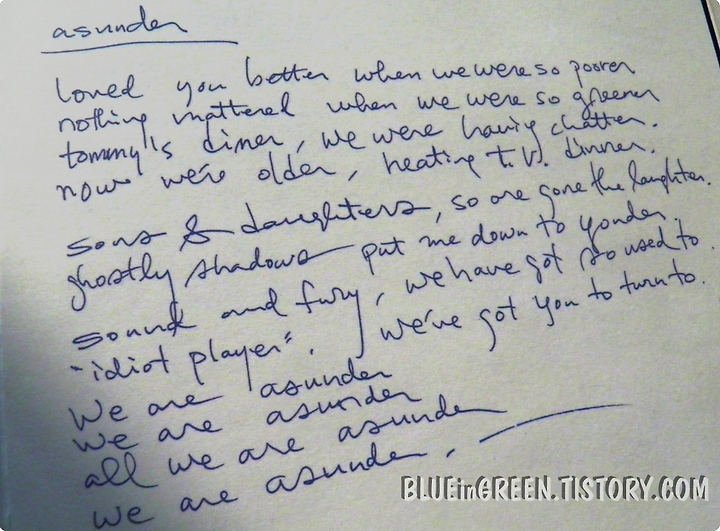 asunder
loved you better when we were so poorer
nothing mattered when we were so greener
tommy's diner, we were having chatter.
now we're older, heating T.V. dinner.
sons & daughters, so are gone the laughter.
ghostly shadows put me down to yonder.
sound and fury, we have got so used to.
"idiot player". we've got you to turn to.
We are asunder
we are asunder
all we are asunder
we are asunder.
BLUEinGREEN.TISTORY.COM